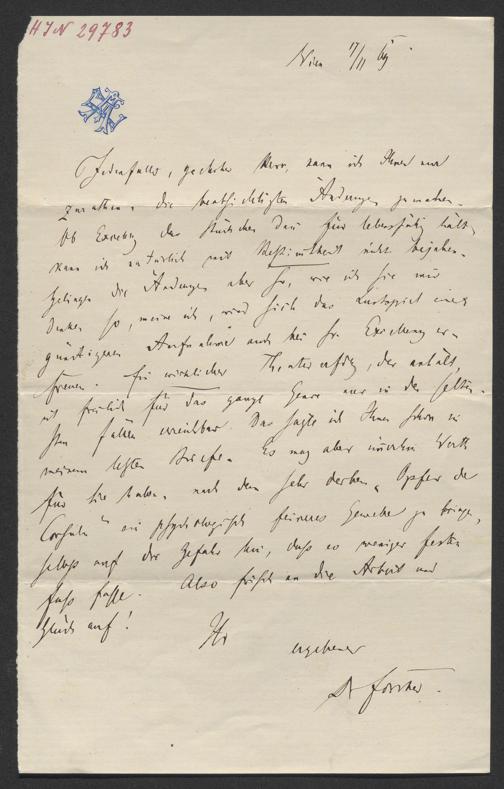 HIN 29783
Wien 17/11 69
Jedenfalls, geehrter Herr, kann ich Ihnen nur
zurathen, die beabsichtigten Änderungen zu machen.
Ob Exredy das Stückchen dann für lebensfähig hält,
kann ich natürlich mit Bestimmtheit nicht bejahen.
Gelingen die Änderungen aber so, wie ich sie mir
denken so, meine ich, wird sich das Lustspiel einer
günstigeren Aufnahme auch bei Sr. er-
freuen. Ein wirklicher Theatererfolg, der anhält,
ist freilich für das ganze Genre nur in den selten-
sten Fällen erreichbar. Das sagte ich Ihnen schon in
meinem letzten Briefe. Es mag aber immerhin Werth
für Sie haben, nach dem sehr derben „Opfer der
Consuln“ ein psychologisch feineres Gewebe zu bringen,
selbst auf die Gefahr hin, daß es weniger festen
Fuß fasse. Also frisch an die Arbeit und
Glück auf!
Ihr
ergebener
Dr Förster.